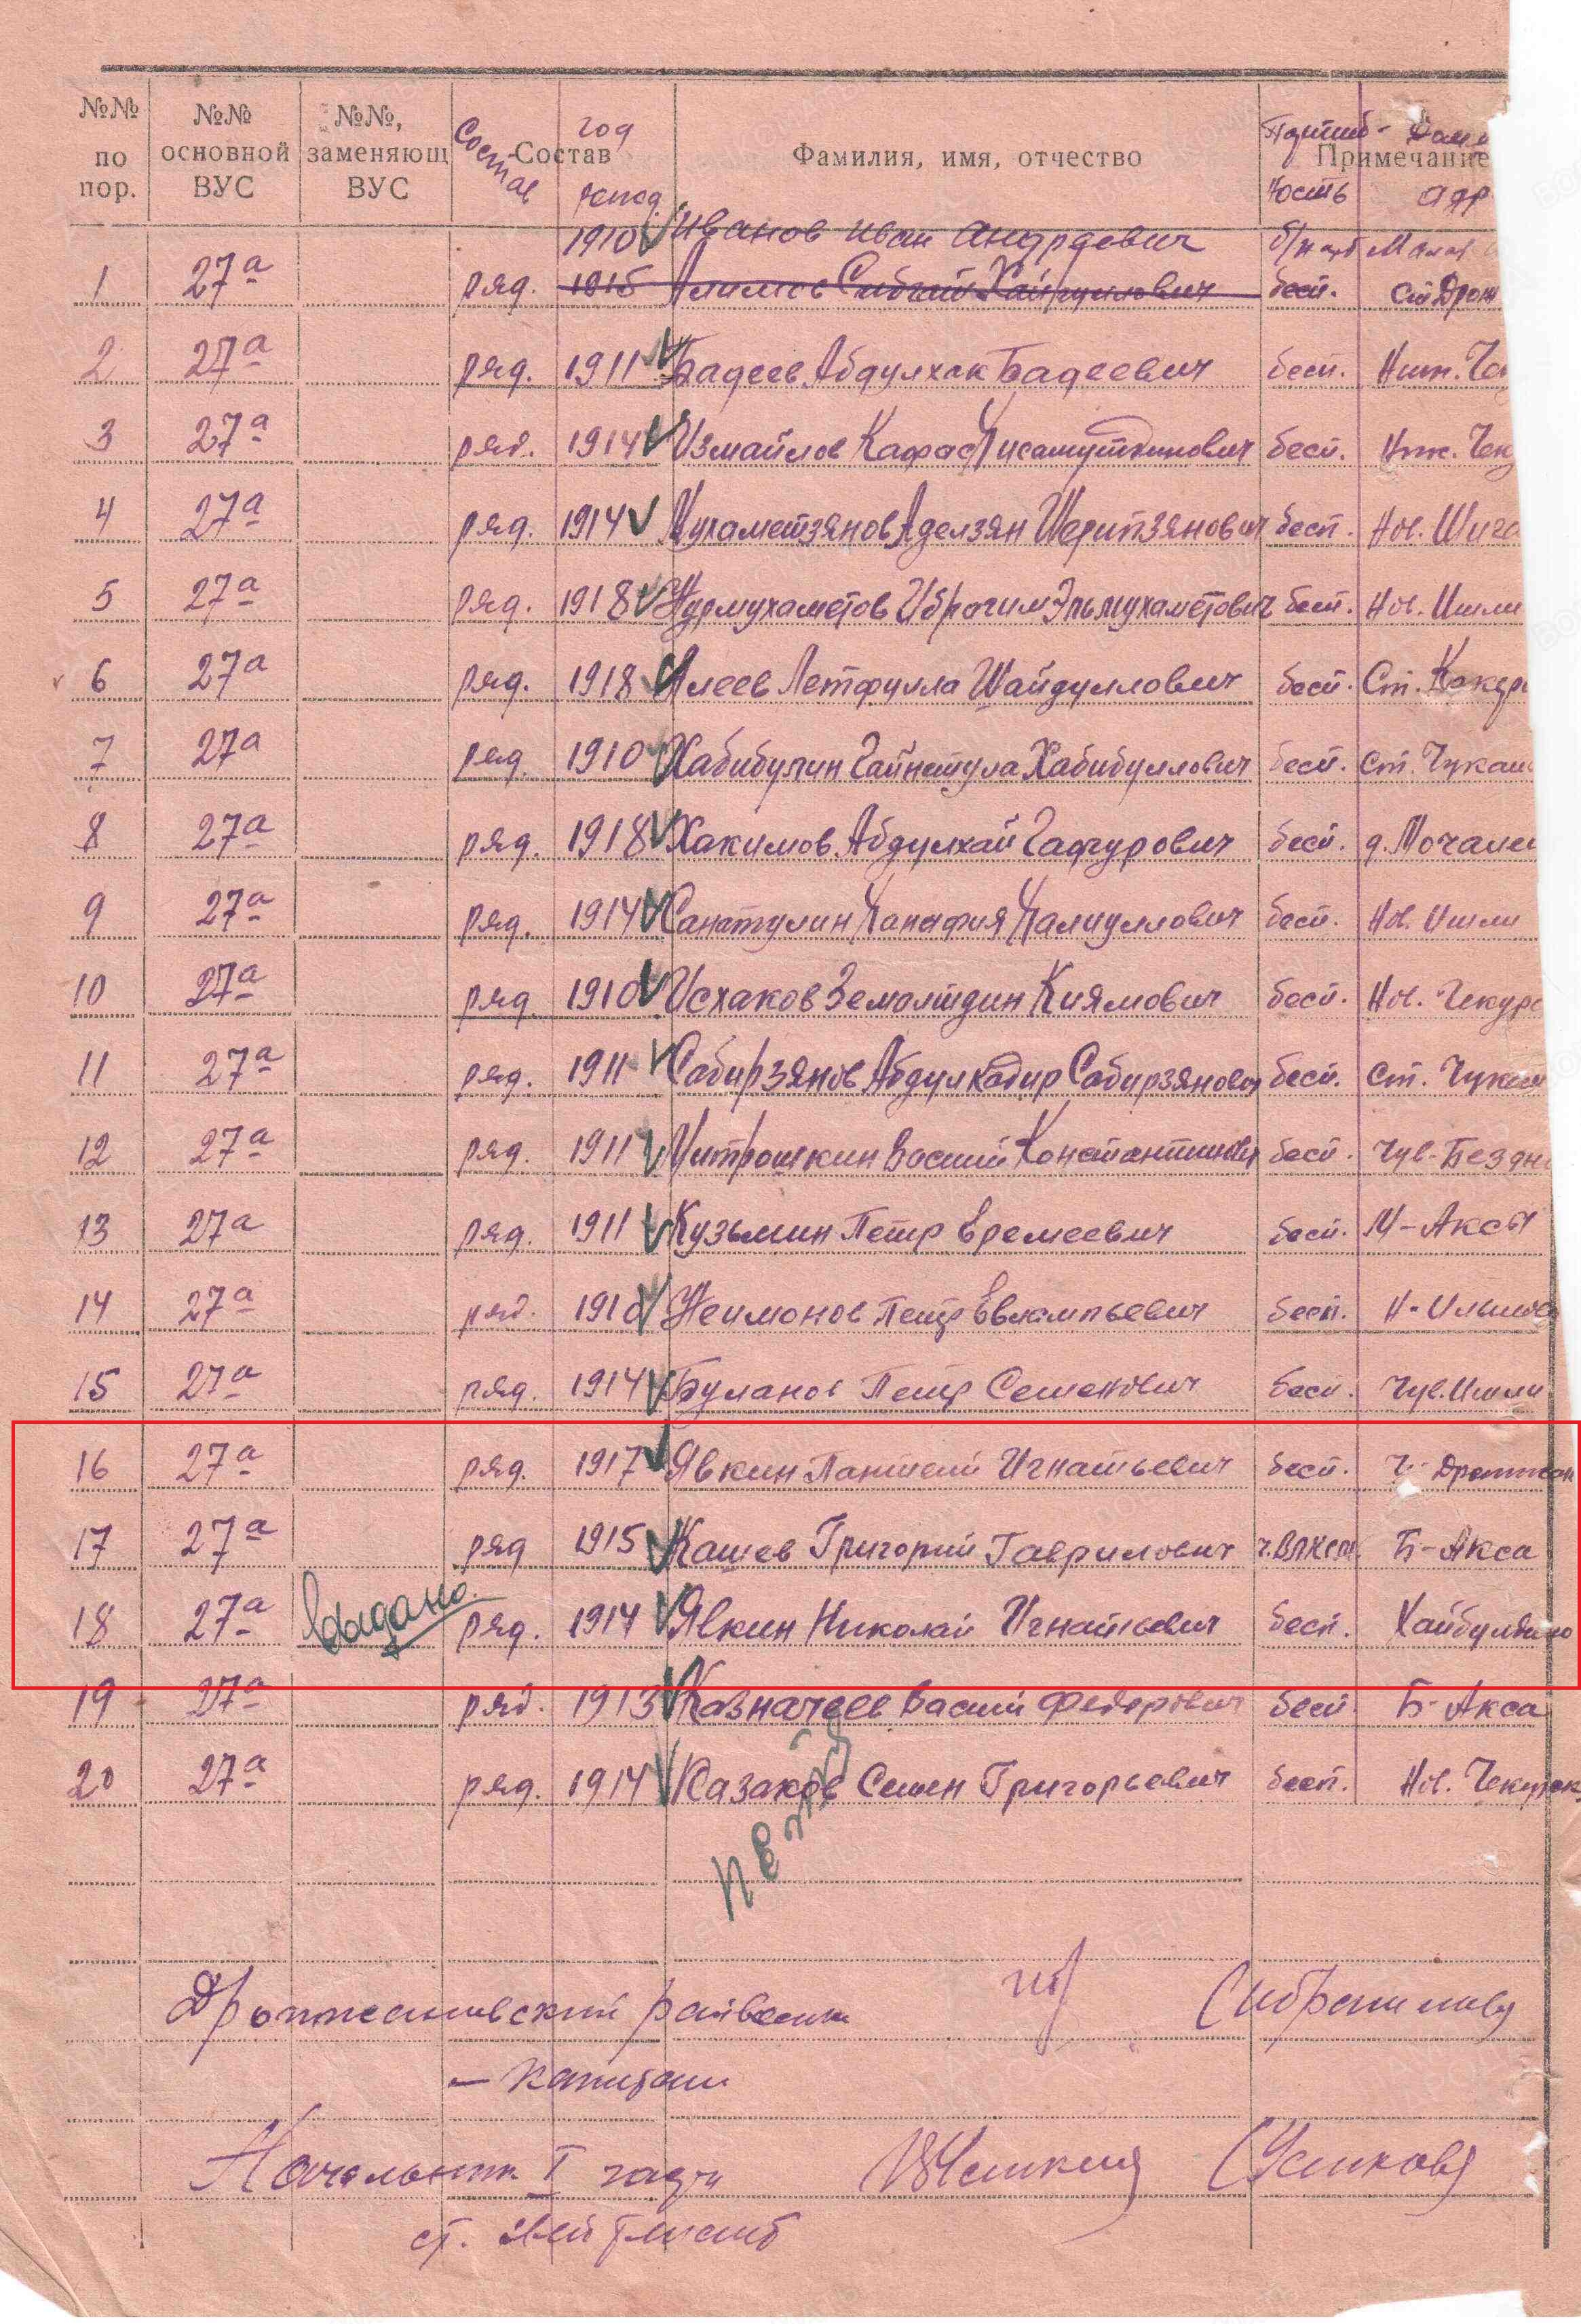 №№ по пор. №№ основной ВУС №№, заменяющ ВУС Состав Состав год рожд. Фамилия, имя, отчество Примечание
1910 Иванов Иван Андреевич б/парт
1 27а ряд. 1915 бесп.
2 27а ряд. 1911 Бадеев Абдулхак Бадеевич бесп. Ниж.
3 27а ряд. 1914 Измайлов бесп. Ниж. Чек
4 27а ряд. 1914 Мухаметзянов Аделзян Шерипзянович бесп. Нов.
5 27а ряд. 1918 Нурмухаметов бесп. Нов. Ишли
6 27а ряд. 1918 Алеев Летфулла Шайдуллович бесп. Ст. Какер
7 27а ряд. 1910 Хабибулин Гайнетула Хабибуллович бесп. Ст. Чукал
8 27а ряд. 1918 Хакимов Абдулхай Гафурович бесп. д. Мочалеи
9 27а ряд. 1914 Санатулин бесп. Нов. Ишли
10 27а ряд 1910 Исхаков Земалтдин Киямович бесп. Нов. Чекурс
11 27а ряд. 1911 Сабирзянов Абдулкадир Сабирзянович бесп. Ст. Чукал
12 27а ряд. 1911 Митрошкин Васили Константинович бесп. Чув-Бездн
13 27а ряд. 1911 Кузьмин Петр Еремеевич бесп. М-Аксы
14 27а ряд. 1910 Неимонов Петр Евлампьевич бесп.
15 27а ряд. 1914 Буланов Петр Семенович бесп. Чув. Ишли
16 27а ряд. 1917 Явкин Пантелей Игнатьевич бесп.
17 27а ряд 1915 Кашев Григорий Гаврилович ч.ВЛКСМ. Б-Акса
18 27а Выдано. ряд. 1914 Явкин Николай Игнатьевич бесп. Хайбулдино
19 27а ряд. 1913 Казначеев Васили Федорович бесп Б-Акса
20 27а ряд. 1914 Казаков Семен Григорьевич бесп. Нов. Чекурск
Дрожжановский райвоенком
- капитан
Начальник I части
ст. лейтенант